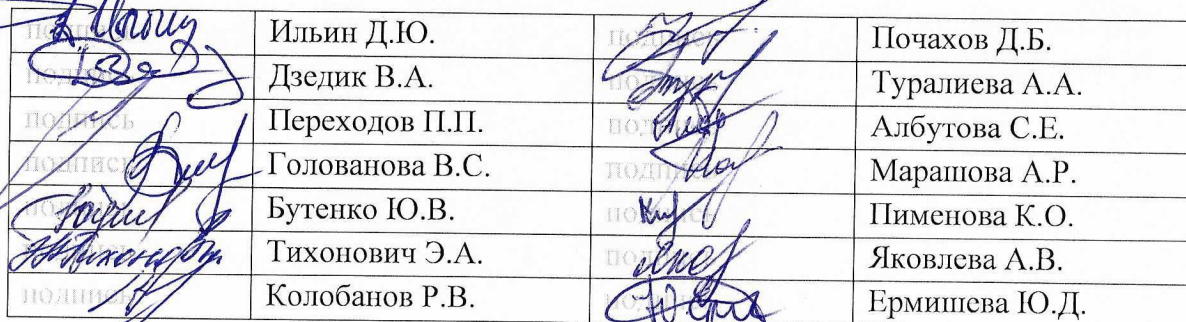 подпись Ильин Д.Ю. подпись Почахов Д.Б.
подпись Дзедик В.А. подпись Туралиева А.А.
подпись Переходов П.П. подпись Албутова С.Е.
подпись Голованова В.С. подпись Марашова А.Р.
подпись Бутенко Ю.В. подпись Пименова К.О.
подпись Тихонович Э.А. подпись Яковлева А.В.
подпись Колобанов Р.В. подпись Ермишева Ю.Д.